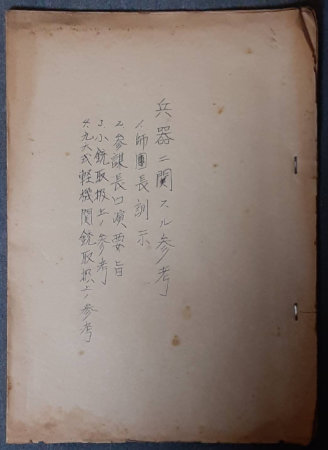 兵器ニ関スル参考
1、師團長訓示
2、参謀長口演要旨
3、小銃取扱上ノ参考
4、九六式軽機関銃取扱上ノ参考